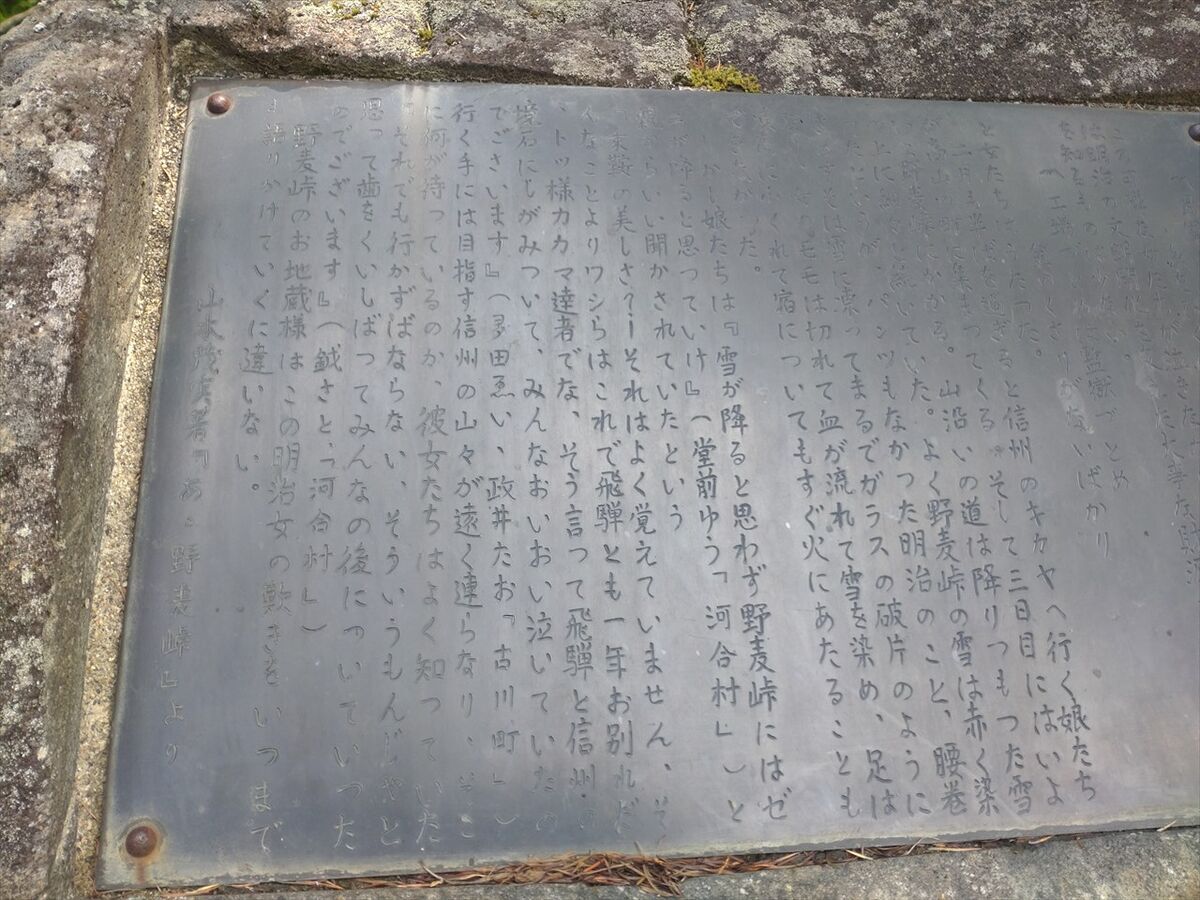 工場づとめは監獄づとめ
金のくさりがないばかり
と女たちはうたった。
二月も半ばを過ぎると信州のキカヤへ行く娘たち
が高山の町に集まってくる。そして三日目にはいよ
いよ野麦峠にかかる。山沿いの道は降りつもった雪
の上に続いていた。よく野麦峠の雪は赤く染
ったというが、パンツもなかった明治のこと、腰巻
のすそは雪に凍ってまるでガラスの破片のように
モモは切れて血が流れて雪を染め、足は
凍傷にふくれて宿についてもすぐ火にあたることも
できなかった。
しかし娘たちは『雪が降ると思わず野麦峠にはゼ
ニが降ると思っていけ』(堂前ゆう「河合村」)と
親からいい聞かされていたという
『乗鞍の美しさ?ーそれはよく覚えていません、そ
んなことよりワシらはこれで飛騨とも一年お別れだ
、トッ様カカマ達者でな、そう言って飛騨と信州の
境石にしがみついて、みんなおいおい泣いていたの
でございます』(多田ゑい、政井たお「古川町」)
行く手には目指す信州の山々が遠く連らなり、そこ
に何が待っているのか、彼女たちはよく知っていた
『それでも行かずばならない、そういうもんじゃと
思って歯をくいしばってみんなの後についていった
のでございます』(鉞さと「河合村」)
野麦峠のお地蔵様はこの明治女の歎きをいつまで
も語りかけていくに違いない。
山本茂実著『あゝ野麦峠』より